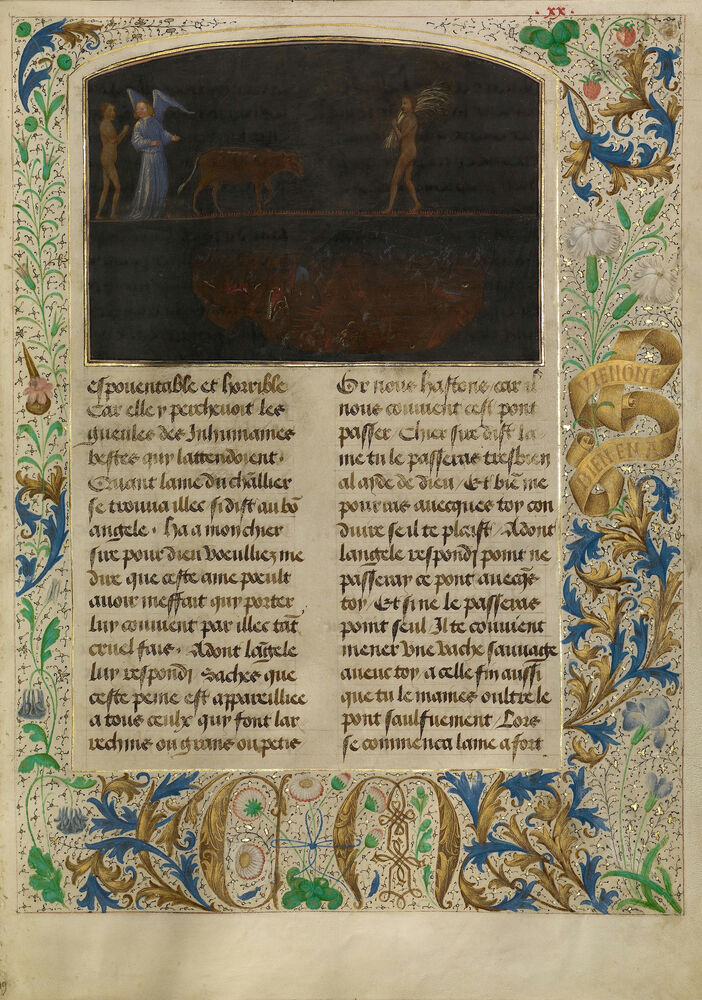 xx
espouentable et horrible
Car elle y percheuoit les
gueules des Inhumaines
bestes quy lattendoient.
Quant lame du challier
se trouua illec si dist au bõ
angele. ha a mon chier
sire pour dieu voeulliez me
dire que ceste ame poeult
auoir meffait quy porter
luy conuient par illec tãt
cruel fais. Adont lãgele
luy respondi Saches que
ceste peine est appareilliee
a tous ceulx quy font lar
rechins ou grans ou petis
Or nous hastons car il
nous conuient cest pont
passer Chier sire dist la
me tu le passeras tresbien
al ayde de dieu. Et bie me
pourras auecques toy con
duire se il te plaist. Adont
langele respondi point ne
passeray ce pont auecq̃s
toy. Et si ne le passeras
point seul Il te conuient
mener vne vache sauuage
auenc toy a celle fin aussi
que tu le maines oultre le
pont saulfuement. Lors
se commenca lame a fort
VIENGNE
BIEN EN A